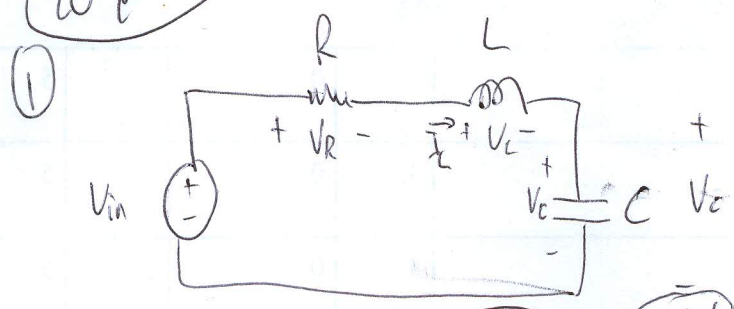 1
R L
+ VR - iL + VL -
Vin + - + VC - C + VC -